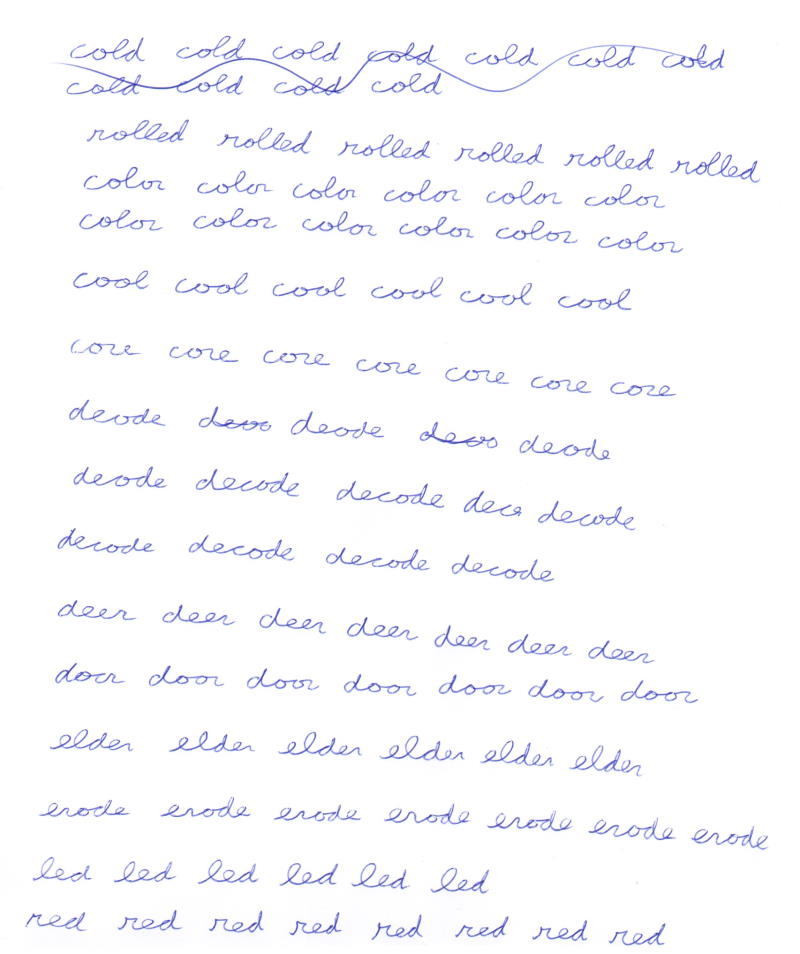 cold cold cold cold cold cold cold
cold cold cold cold
rolled rolled rolled rolled rolled rolled
color color color color color color
color color color color color color
cool cool cool cool cool cool
core core core core core core core
deode devo deode devo deode
deode decode decode deco decode
decode decode decode decode
deer deer deer deer deer deer deer
door door door door door door door
elder elder elder elder elder elder
erode erode erode erode erode erode erode
led led led led led led
red red red red red red red